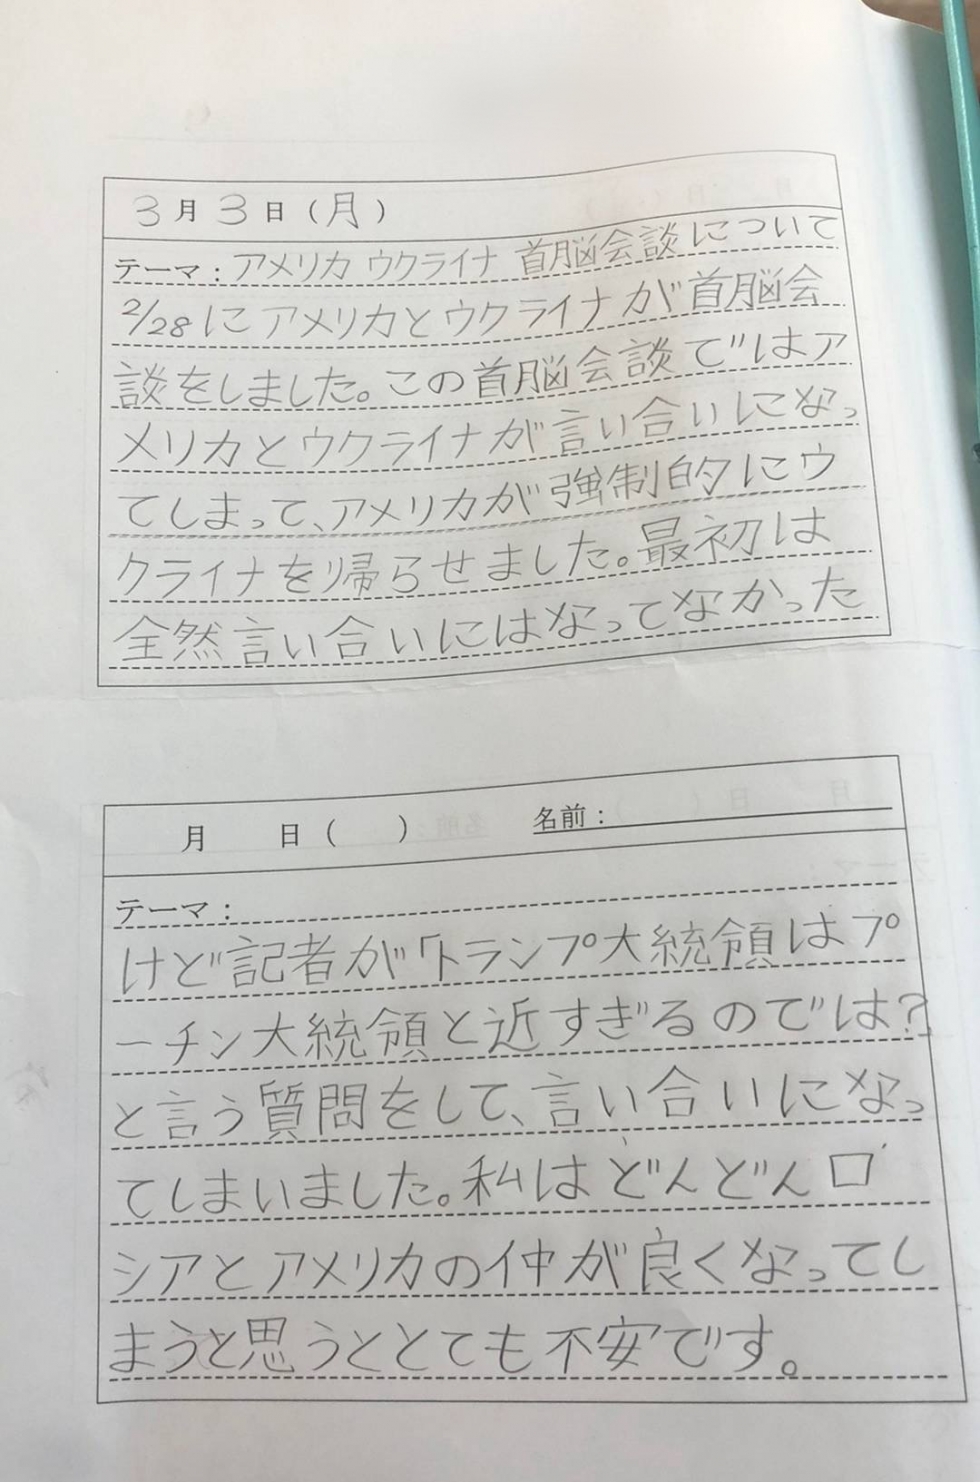 3月3日(月)
テーマ:アメリカ ウクライナ 首脳会談について
2/28にアメリカとウクライナが首脳会
談をしました。この首脳会談ではア
メリカとウクライナが言い合いになっ
てしまって、アメリカが強制的にウ
クライナを帰らせました。最初は
全然言い合いにはなってなかった
月 日( ) 名前:
テーマ:
けど記者が「トランプ大統領はプ
ーチン大統領と近すぎるのでは?
と言う質問をして、言い合いになっ
てしまいました。私はどんどんロ
シアとアメリカの仲が良くなってし
まうと思うととても不安です。